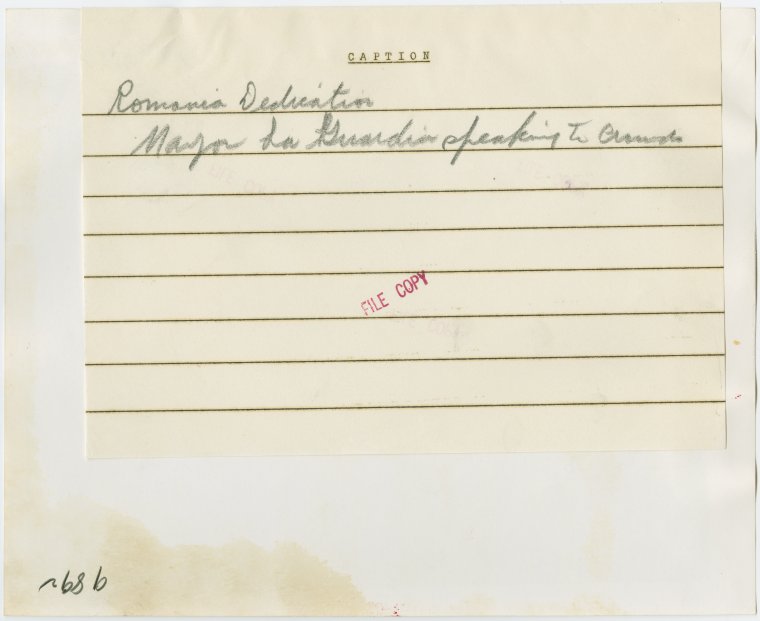 CAPTION
Romania Dedication
Mayor La Guardia speaking to Crowds
FILE COPY